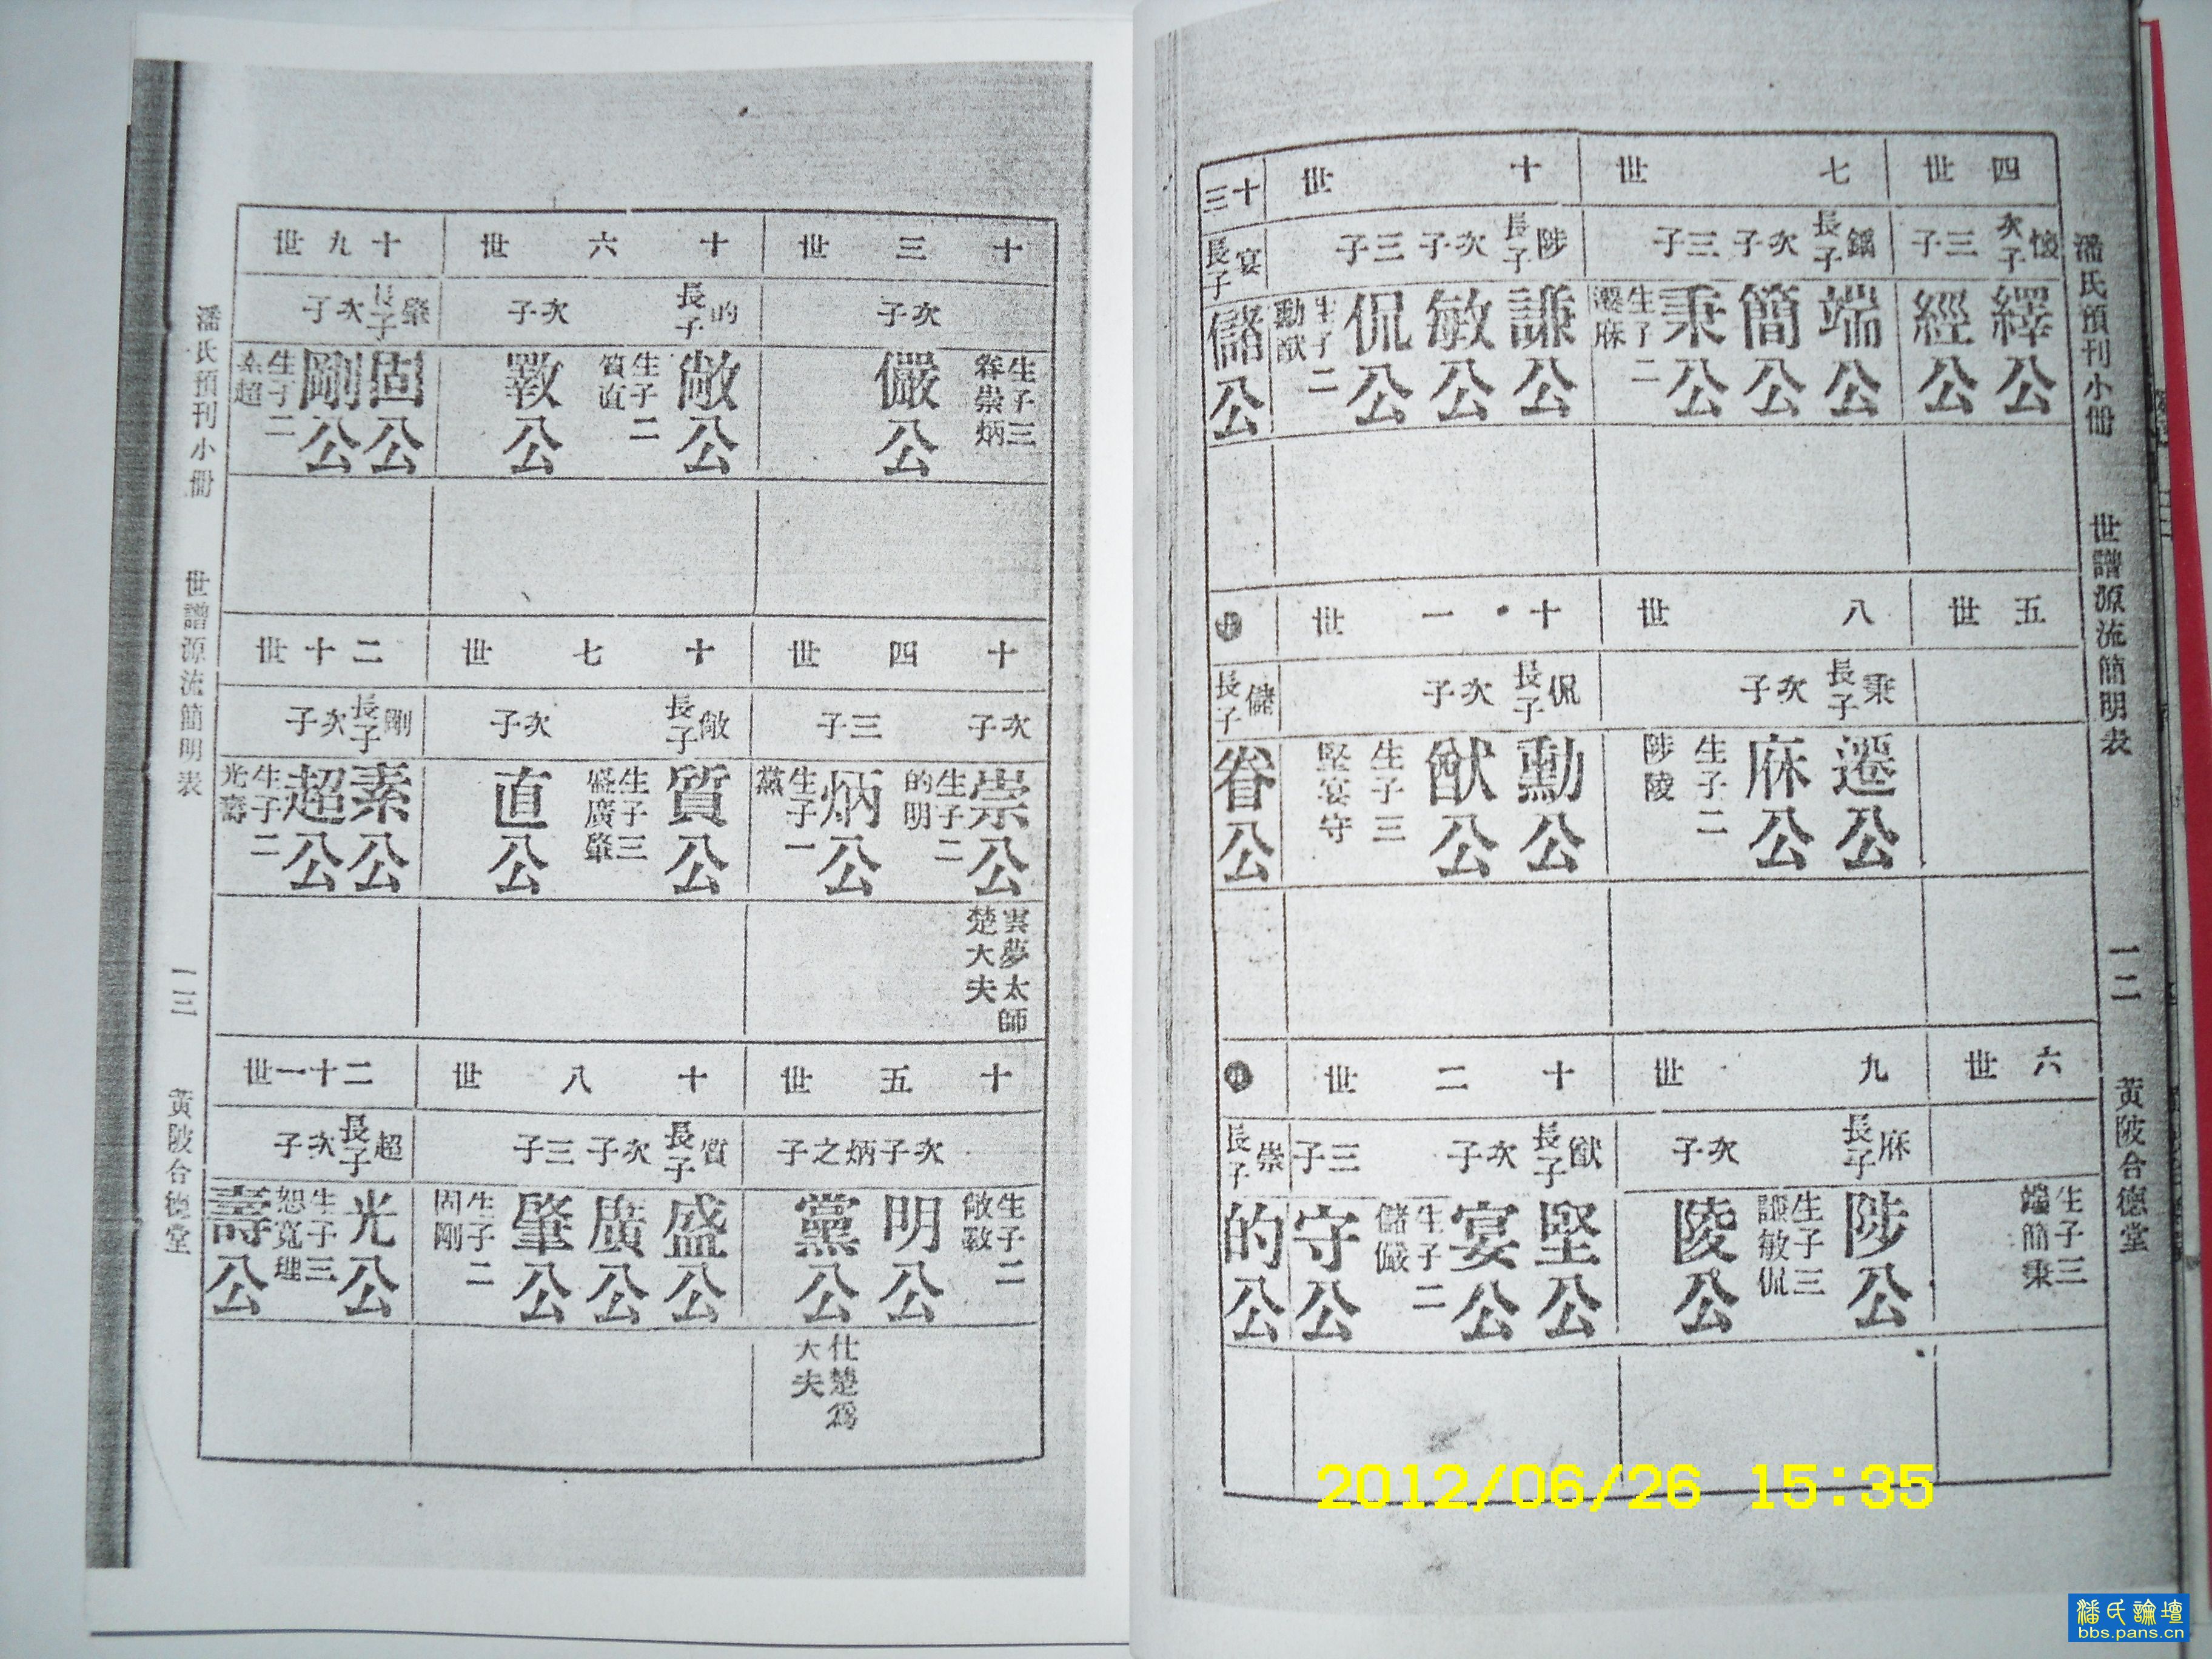 潘氏預刊小冊 世譜源流簡明表 一二 黃陂合德堂
四世
懷次子
三子
繹公
經公
五世
六世
生子三
端簡秉
七世
鑴長子
次子
三子
端公
簡公
秉公
生子二
遷麻
八世
秉長子
次子
遷公
麻公
生子二
陟陵
九世
麻長子
次子
陟公
生子三
謙敏侃
陵公
十世
陟長子
次子
三子
謙公
敏公
侃公
生子二
勳猷
十一世
侃長子
次子
勳公
猷公
生子三
堅宴守
十二世
猷長子
次子
三子
堅公
宴公
生子二
儲儼
守公
十三
宴長子
儲公
儲長子
眷公
崇長子
的公
潘氏預刊小冊 世譜源流簡明表 一三 黃陂合德堂
十三世
次子
生子三
眷崇炳
儼公
十四世
次子
三子
崇公
生子二
的明
炳公
生子一
黨
雲夢太師
楚大夫
十五世
次子炳之子
生子二
敞斁
明公
黨公
仕楚為
大夫
十六世
的長子
次子
敞公
生子二
質直
斁公
十七世
敞長子
次子
質公
生子三
盛廣肇
直公
十八世
質長子
次子
三子
盛公
廣公
肇公
生子二
固剛
十九世
肇長子
次子
固公
剛公
生子二
素超
二十世
剛長子
次子
素公
超公
生子二
光壽
二十一世
超長子
次子
光公
生子三
恕寬
壽公
2012/06/26 15:35
潘氏論壇
bbs.pans.cn